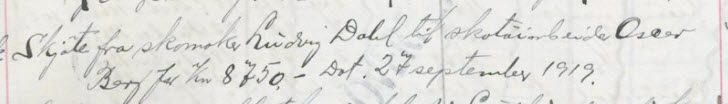 Skjøte fra skomaker Ludvig Dahl til skotøiarbeider Oscar
Berg for kr 8750.- Dat. 27 september 1919.